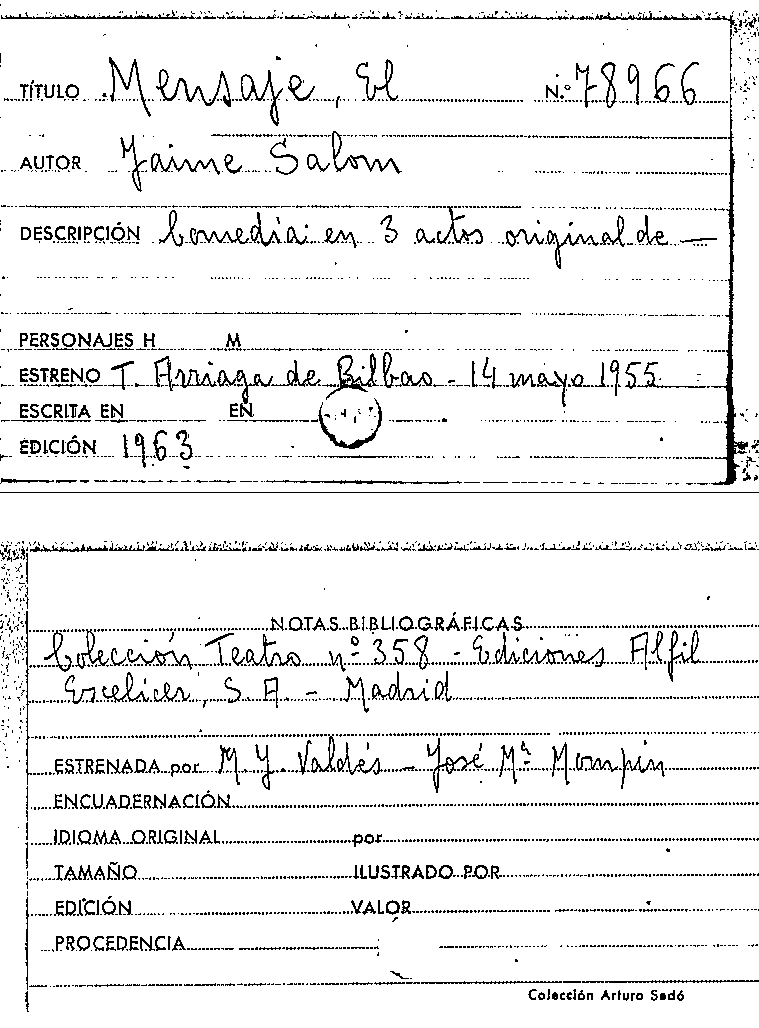 TÍTULO Mensaje, El N.º 78966
AUTOR Jaime Salom
DESCRIPCIÓN Comedia en 3 actos original de —
PERSONAJES H M
ESTRENO T. Arriaga de Bilbao - 14 mayo 1955
ESCRITA EN EN
EDICIÓN 1963
NOTAS BIBLIOGRÁFICAS
Colección Teatro nº 358 - Ediciones Alfil
Escelicer, S. A. - Madrid
ESTRENADA por M. J. Valdés - José Mª Mompin
ENCUADERNACIÓN
IDIOMA ORIGINAL por
TAMAÑO ILUSTRADO POR
EDICIÓN VALOR
PROCEDENCIA
Colección Arturo Sedó